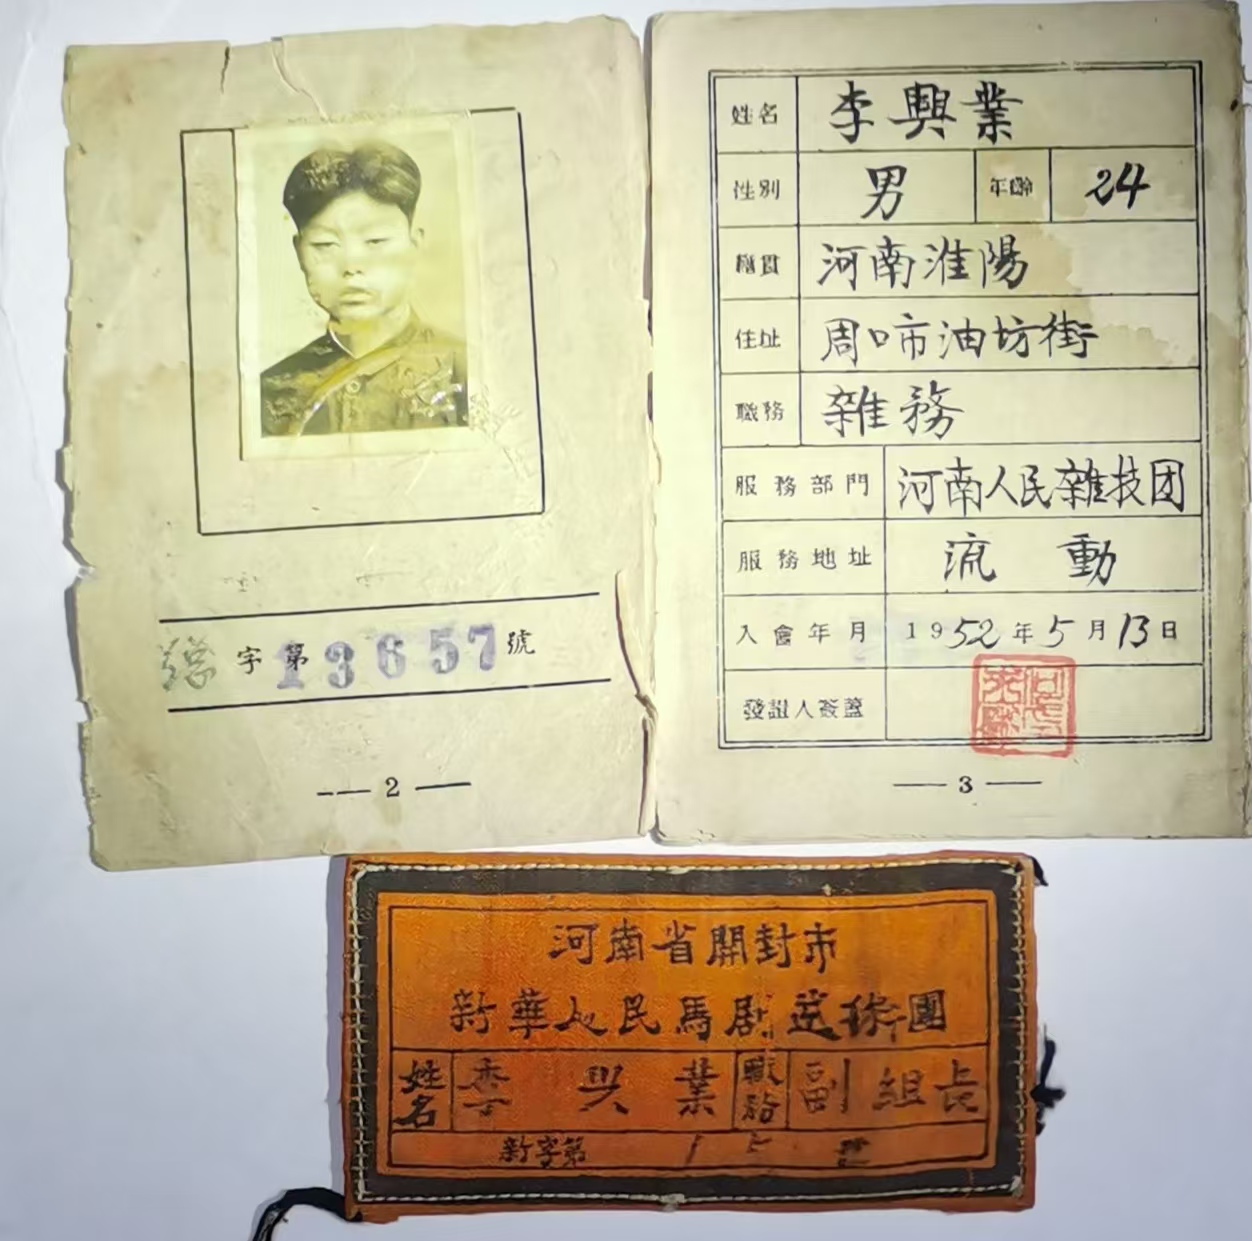 字第13657號
—2—
姓名 李興業
性別 男 年齡 24
籍貫 河南淮陽
住址 周口市油坊街
職務 雜務
服務部門 河南人民雜技团
服務地址 流動
入會年月 1952年5月13日
發證人簽蓋
—3—
河南省開封市
新華人民馬剧 術團
姓名 李兴業 職務 副組长
新字第 15